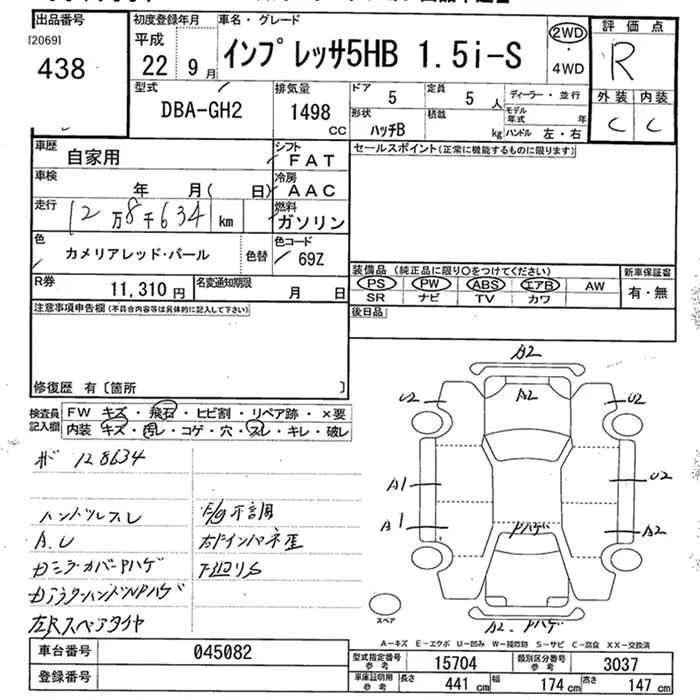 出品番号 初度登録年月 車名・グレード 評価点
[2069] 平成
438 22年 9月 インプレッサ5HB 1.5i-S 2WD ・ 4WD R
型式 排気量 ドア 定員 ディーラー・並行 外装 内装
DBA-GH2 1498 cc 5 5人 モデル年式 年 C C
形状 積載
ハッチB kg ハンドル 左・右
車歴 自家用 シフト FAT セールスポイント(正常に機能するものに限ります)
車検 年 月( 日) 冷房 AAC
走行 12万8千634 km 燃料 ガソリン
色 カメリアレッド・パール 色替 色コード 69Z
装備品 (純正品に限り○をつけてください) 新車保証書
R券 11,310円 名変通知期限 月 日 PS PW ABS エアB AW 有・無
SR ナビ TV カワ
注意事項申告欄(不具合内容等は具体的に記入して下さい) 後日品
修復歴 有〔箇所 〕
検査員記入欄 FW キズ・飛石・ヒビ割・リペア跡・×要
内装 キズ・汚レ・コゲ・穴・スレ・キレ・破レ
128634
ハンドルスレ E/g不調
A.U
下廻りS
左Rスペアタイヤ
A2
U2 A2 U2
A1 U2
A1 Pハゲ A2
スペア
A2.Pハゲ
A-キズ E-エクボ U-凹み W-補修跡 S-サビ C-腐食 XX-交換済
車台番号 045082 型式指定番号 参考 15704 類別区分番号 参考 3037
登録番号 車庫証明用 参考 長さ 441 cm 幅 174 cm 高さ 147 cm